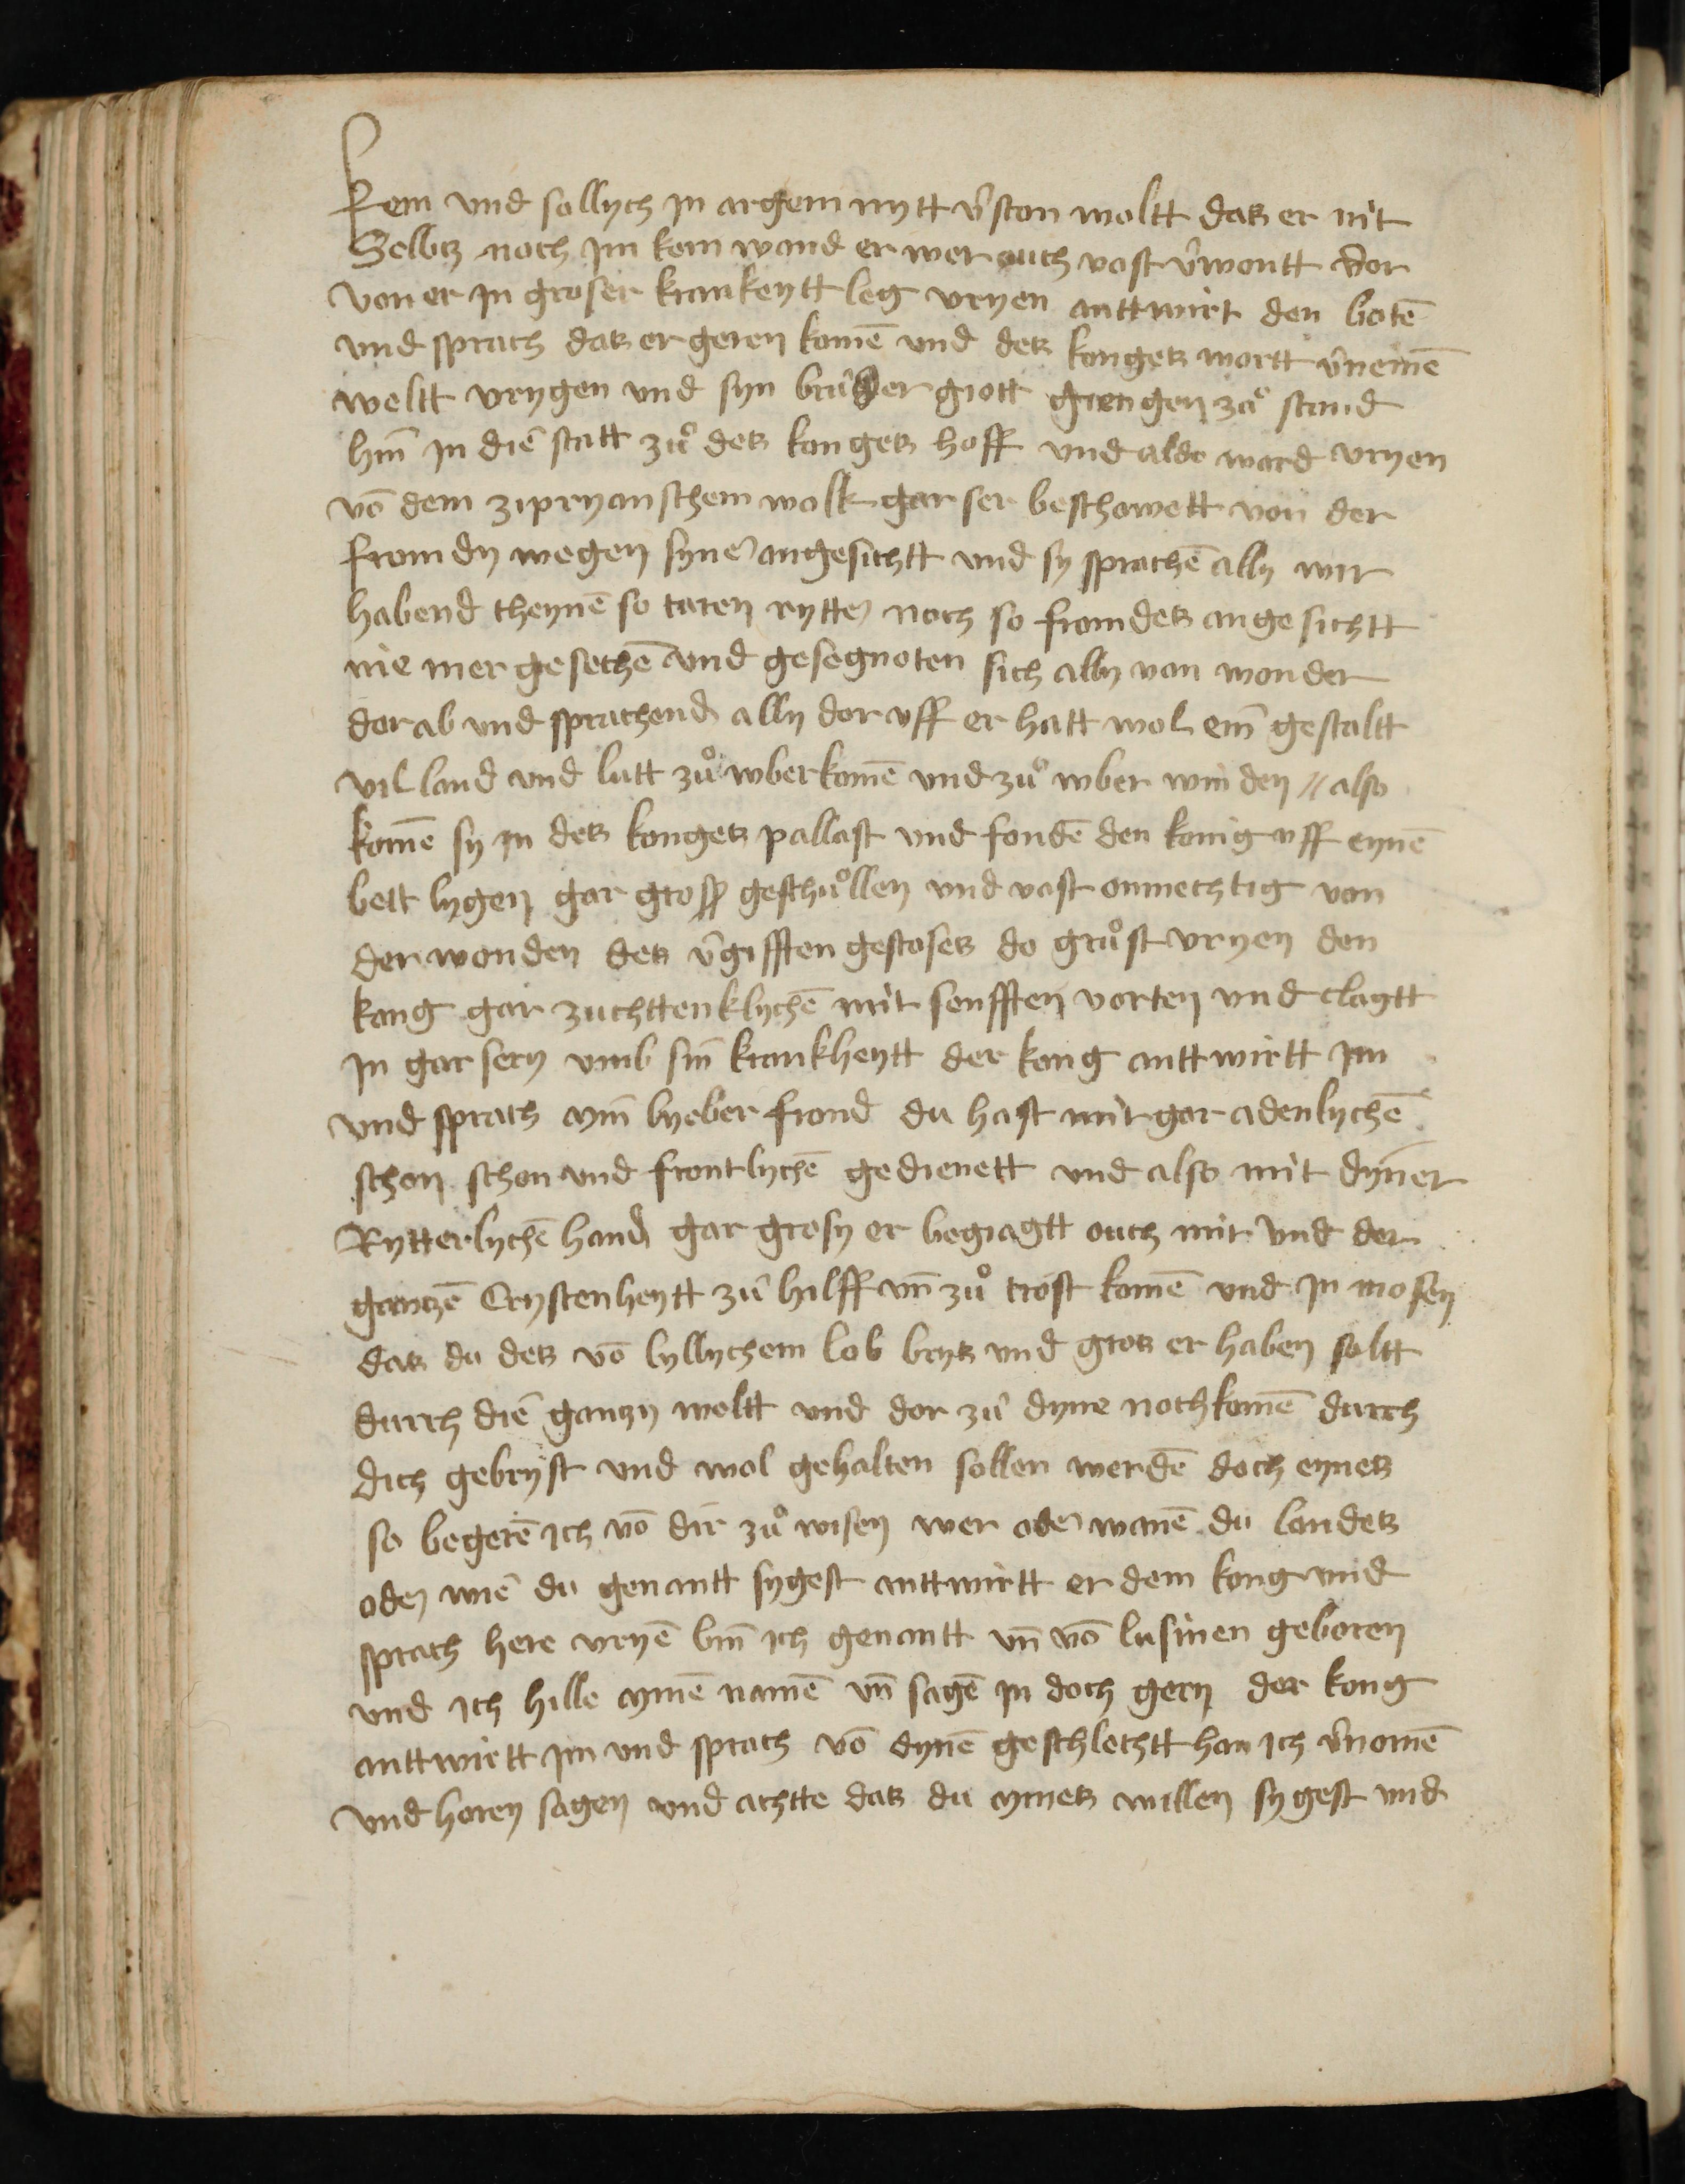 kem vnd sollych jn argem nytt v̄ston woltt daß er nit
Selbß noch jm kem wand er wer ouch vast v̄wontt dor
von er jn groser krankeytt leg vryen anttwirt den botē
vnd sprach daß er geren komē vnd deß kongeß wortt v̄nemē
weltt vrygen vnd syn brůder giott giengen zů stand
hin̄ jn die statt zů deß kongeß hoff vnd aldo ward vryen
vō dem zipryanschem wolk gar ser beschowett von der
fromdy wegen syner angesichtt vnd sy sprachē ally wir
habend theynē so taren rytter noch so fromdeß angesichtt
nie mer gesechē vnd gesegnoten sich ally von wonder
dor ab vnd sprachend ally dor vff er hatt wol ein̄ gestaltt
vil land vnd lutt zů wberkomē vnd zů wber winden // also
komē sy jn deß kongeß pallast vnd fondē den konig vff eynē
bett lygen gar groß geschwůllen vnd vast onmechtig von
der wonden deß v̄gifften gestoseß do grůst vryen den
kong gar zuchttenklychē mit senfften vorten vnd clagtt
jn gar sery vmb sin̄ krankheytt der kong anttwirtt jm
vnd sprach myn̄ lyeber frond du hast mir gar adenlychē
schon schon vnd frontlychē gedienett vnd also mit dyner
Rytterlychē hand gar grosy er begiagtt ouch mir vnd der
gantzē Crystenheytt zů hilff vn̄ zů trost komē vnd jn mosen
daß du deß vō byllychem lob bryß vnd groß er haben soltt
durch die gantzy weltt vnd dor zů dyne nochkomē durch
dich gebryst vnd wol gehalten sollen werdē doch eyneß
so begerē ich vō dir zů wisen wer oder wanē du landeß
oder wie du genantt sygest anttwirtt er dem kong vnd
sprach here vryē bin̄ ich genantt vn̄ vō lusinen geboren
vnd ich hille mynē namē vn̄ sagē jn doch gern der kong
anttwirtt jm vnd sprach vō dynē geschlechtt han ich v̄nomē
vnd horen sagen vnd achtte daß du myneß willen sygest vnd